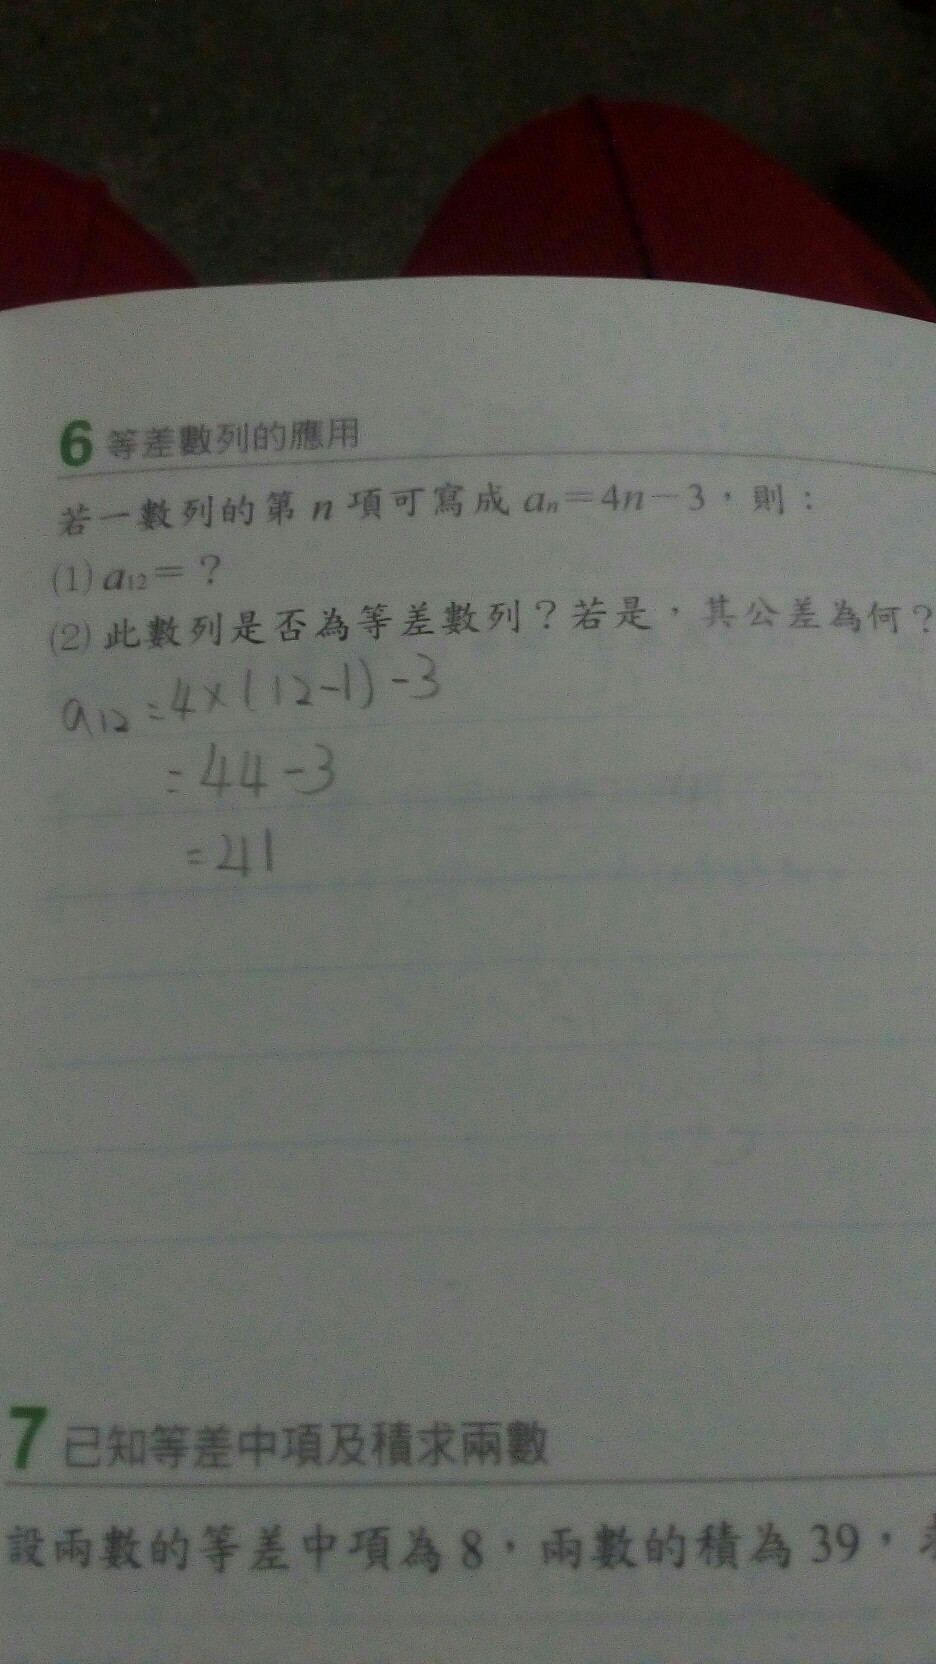 6 等差數列的應用
若一數列的第 n 項可寫成 aₙ=4n-3，則：
(1) a₁₂=？
(2) 此數列是否為等差數列？若是，其公差為何？
a₁₂=4×(12-1)-3
=44-3
=41
7 已知等差中項及積求兩數
設兩數的等差中項為 8，兩數的積為 39，